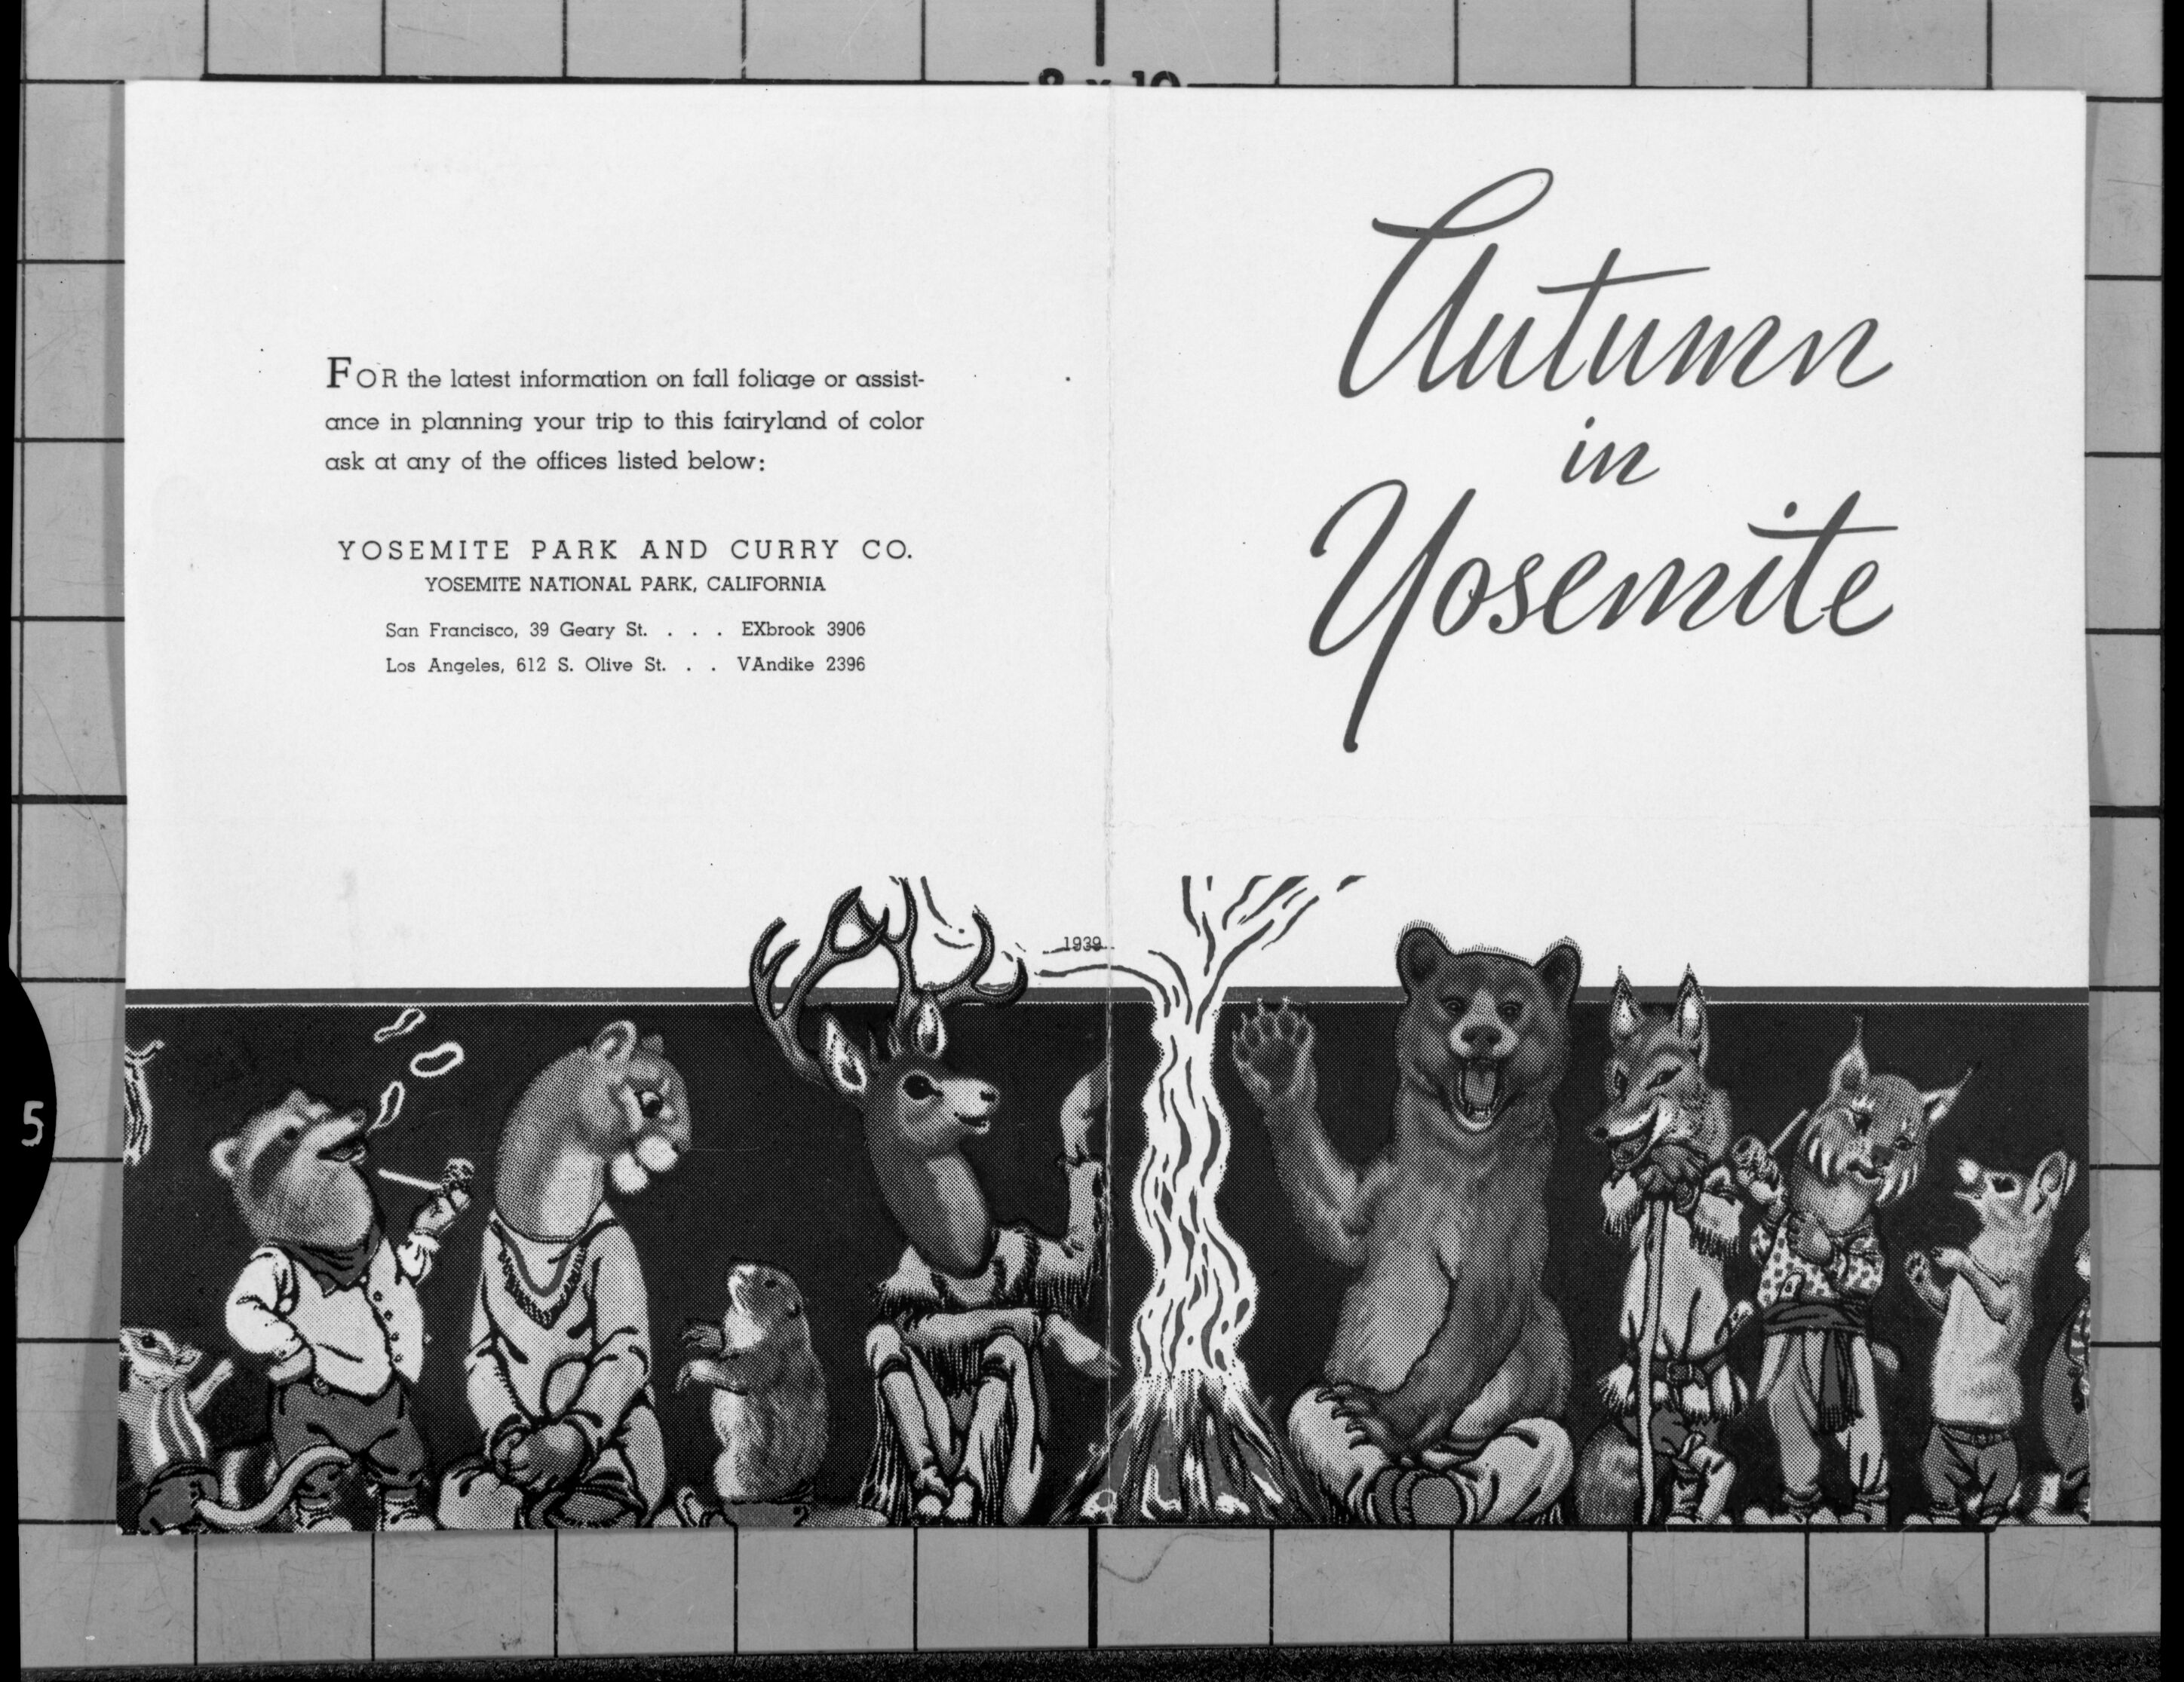 8 x 10
FOR the latest information on fall foliage or assist-
ance in planning your trip to this fairyland of color
ask at any of the offices listed below:
YOSEMITE PARK AND CURRY CO.
YOSEMITE NATIONAL PARK, CALIFORNIA
San Francisco, 39 Geary St. . . . EXbrook 3906
Los Angeles, 612 S. Olive St. . . VAndike 2396
Autumn
in
Yosemite
1939
5